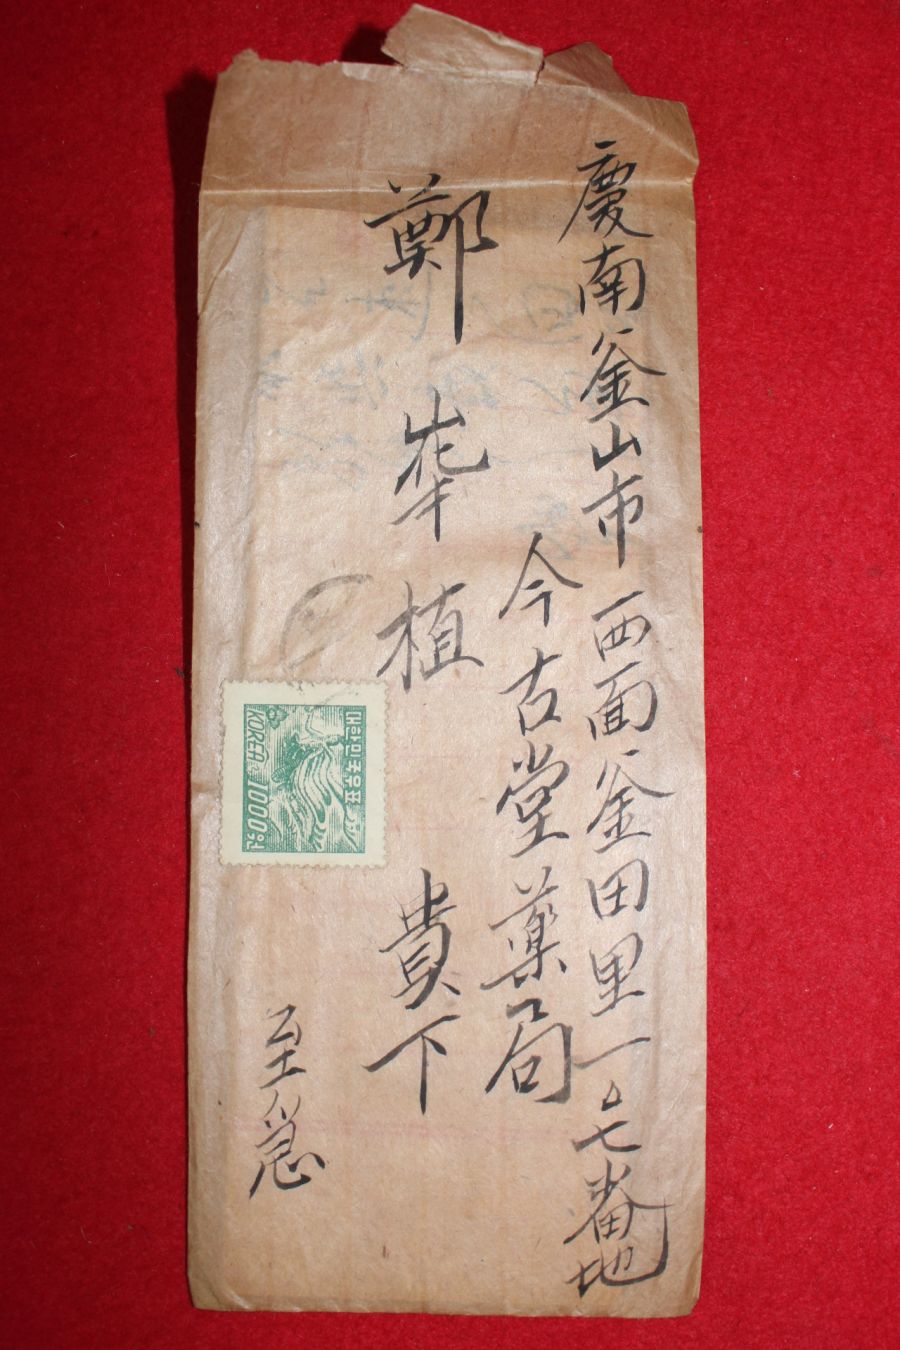 慶南釜山市西面釜田里一〇七番地
今古堂薬局
鄭 植 貴下
至急
대한민국우표
KOREA 1000원